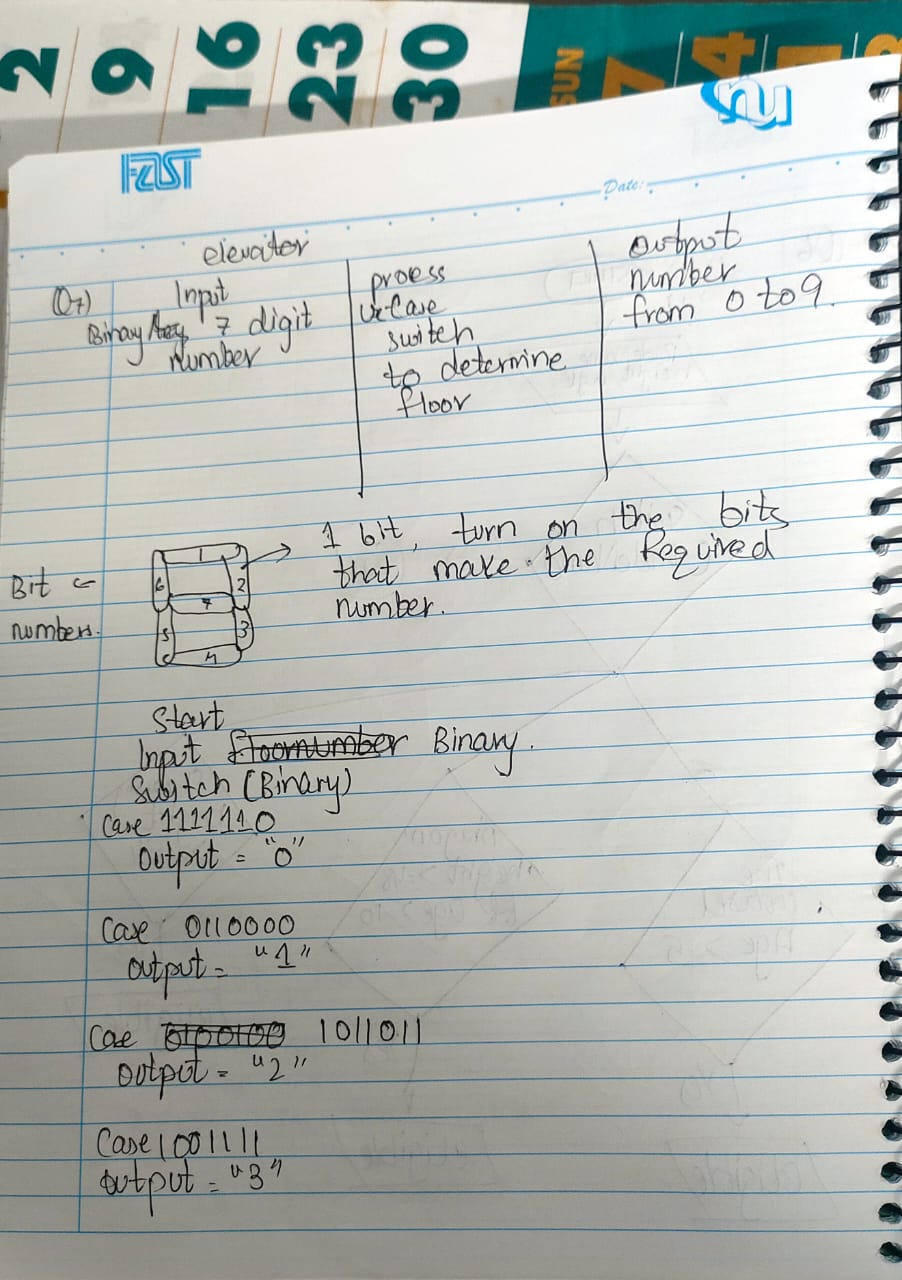 2 9 16 23 30 SUN 7 4
nu
FAST
Date:
elevater
Q7)
Input
Binary 7 digit
number
proess
switch
to determine
floor
output
number
from 0 to 9.
Bit
numbers.
1
2
3
4
5
6
7
1 bit, turn on the bits
that make the Required
number.
Start
Input floornumber Binary.
Switch (Binary)
Case 1111110
Output = "0"
Case 0110000
output = "1"
Case 1011011
output = "2"
Case 1001111
output = "3"